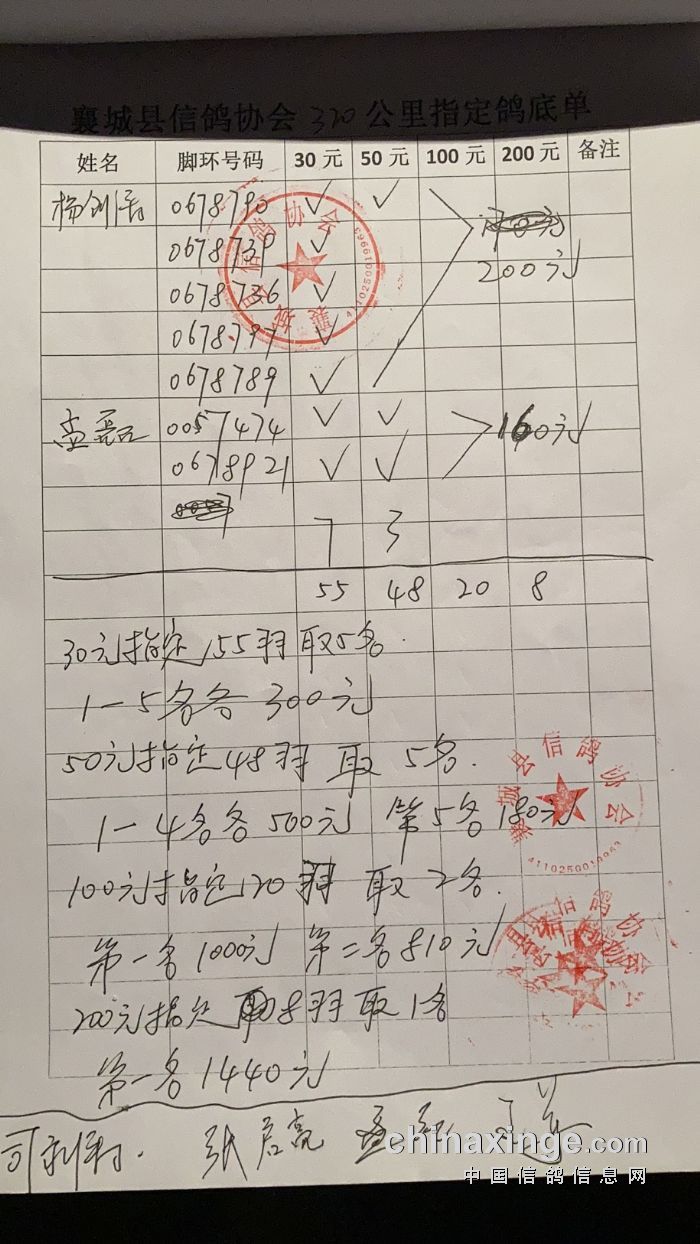 襄城县信鸽协会 320 公里指定鸽底单
姓名 脚环号码 30元 50元 100元 200元 备注
0678790 ✓ ✓
0678739 ✓ 200元
0678736 ✓
0678797 ✓
0678789 ✓
孟磊 0057474 ✓ ✓ 160元
0678921 ✓ ✓
7 3
55 48 20 8
30元指定 55羽 取5名.
1-5名各 300元
50元指定48羽 取 5名.
1-4名各500元 第5名180元
100元指定20羽 取 2名.
第一名1000元 第二名810元
200元指定 8羽取1名
第一名1440元
襄城县信鸽协会
4110250019963
襄城县信鸽协会
4110250019963
chinaxinge.com
中国信鸽信息网